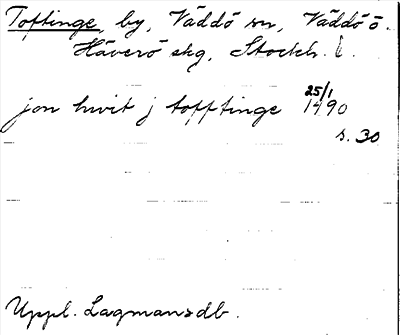 Toftinge, by, Väddö sn, Väddö ö.
Häverö skg, Stockh. l.
jon hwit j tofftinge 25/1 1490
s. 30
Uppl. Lagmansdb.